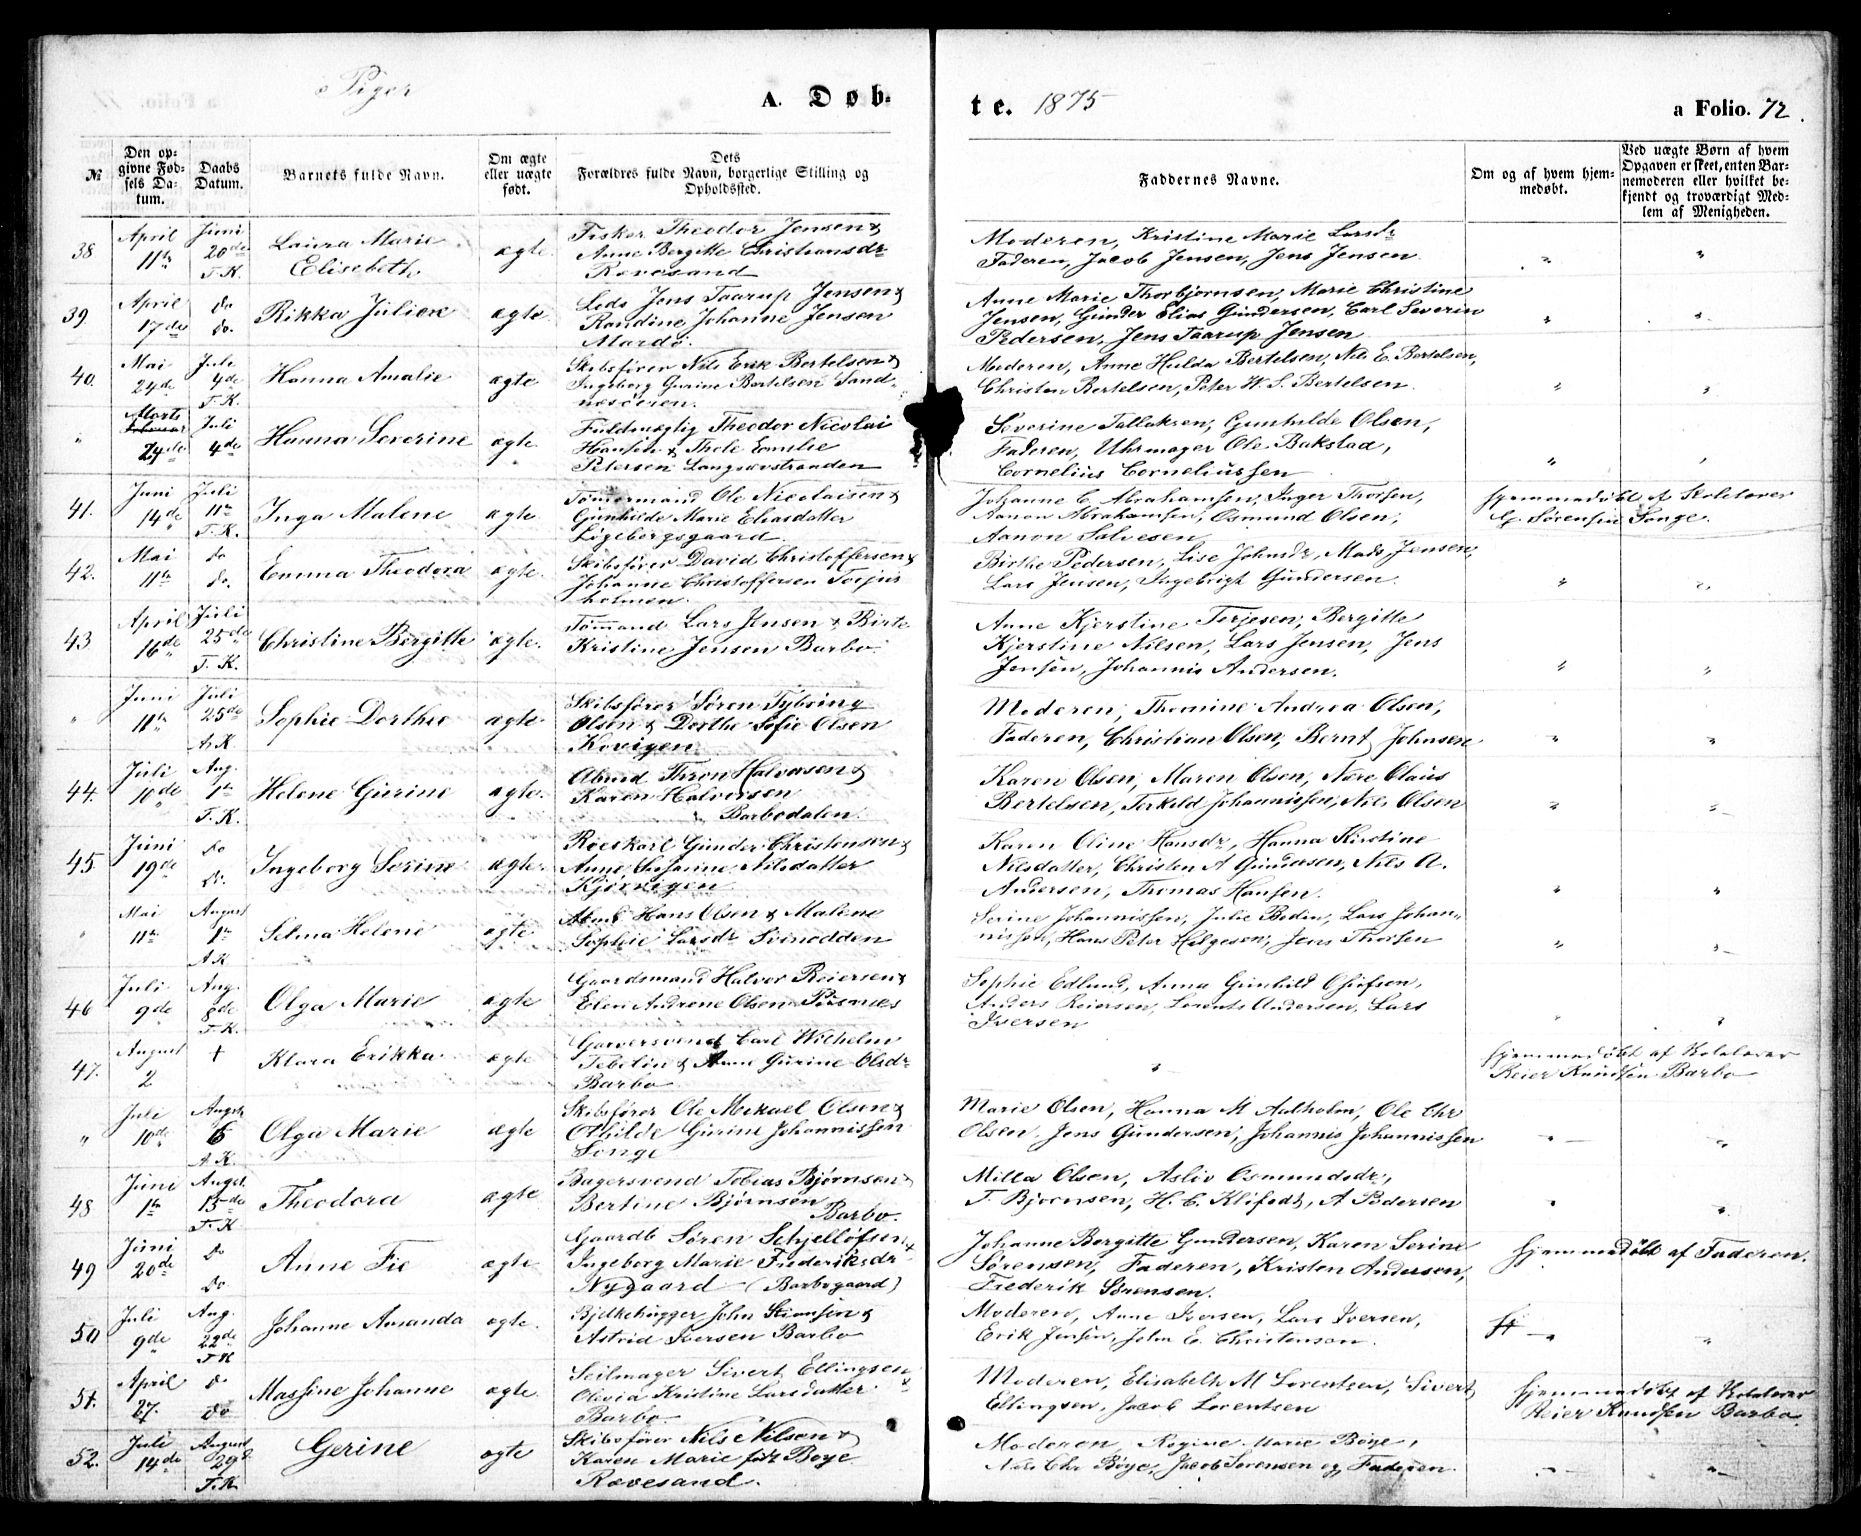 Piger
A. Døb-
te. 1875
a Folio. 72.
№
Den op-
givne Fød-
sels Da-
tum.
Daabs
Datum.
Barnets fulde Navn.
Om ægte
eller uægte
født.
Dets
Forældres fulde Navn, borgerlige Stilling og
Opholdssted.
Faddernes Navne.
Om og af hvem hjem-
medøbt.
Ved uægte Børn af hvem
Opgaven er skeet, enten Bar-
nemoderen eller hvilket be-
kjendt og troværdigt Med-
lem af Menigheden.
38 April 11te Juni 20de T. K.
Laura Marie
Elisebeth
ægte
Fisker Theodor Jensen &
Anne Bergitte Christiansdr
Rævesand
Moderen, Kristine Marie Larsdr
Faderen, Jacob Jensen, Jens Jensen
39. April 17de do do.
Rikka Juliane
ægte
Lods Jens Taarup Jensen &
Randine Johanne Jensen
Mardø.
Anne Marie Thorbjørnsen, Marie Christine
Jensen, Gunder Elias Gundersen, Carl Severin
Pedersen, Jens Taarup Jensen
40. Mai 24de Juli 4de T. K.
Hanna Amalie
ægte
Skibsfører Nils Erik Bertelsen &
Ingeborg Gurine Bertelsen Sand-
næsóeren.
Moderen, Anne Hulda Bertelsen, Nils E. Bertelsen,
Christen Bertelsen, Peter W. S. Bertelsen.
" Marts 24de Juli 4de
Hanna Severine
ægte
Fuldmægtig Theodor Nicolai
Hansen & Thole Emilie
Petersen Langsævstranden
Severine Tellaksen, Gunhilde Olsen,
Faderen, Uhrmager Ole Bakstad,
Cornelius Corneliussen
41. Juni 14de Juli 11te T. K.
Inga Malene
ægte
Tømmermand Ole Nicolaisen &
Gunhilde Marie Eliasdatter
Løgebergsgaard
Johanne C. Abrahamsen, Inger Thorsen,
Aanon Abrahamsen, Osmund Olsen,
Aanon Salvesen
Hjemmedøbt af Skolelærer
G. Sørensen Songe.
42. Mai 11te do do.
Emma Theodora
ægte.
Skibsfører David Christoffersen &
Johanne Christoffersen Torjus-
holmen.
Birthe Pedersen, Lise Johnsdr, Mads Jensen,
Lars Jensen, Ingebrigt Gundersen.
43 April 16de Juli 25de T. K.
Christine Bergitte
ægte.
Tømmand Lars Jensen & Birte
Kristine Jensen Barbo.
Anne Kjerstine Torjesen, Bergitte
Kjerstine Nilsen, Lars Jensen, Jens
Jensen, Johannis Andersen.
" Juni 11te Juli 25de A. K.
Sophie Dorthie
ægte.
Skibsfører Søren Tybring
Olsen & Dorthe Sofie Olsen
Kovigen
Moderen, Thomine Andrea Olsen,
Faderen, Christian Olsen, Bernt Johnsen
44. Juli 10de Aug. 1te T. K.
Helene Gurine
ægte.
Arbmd Thron Halvorsen &
Karen Halvorsen
Barbodalen.
Karen Olsen, Maren Olsen, Nere Olaus
Bertelsen, Terkild Johannissen, Nils Olsen
45. Juni 19de Do do.
Ingeborg Serine
ægte.
Røeskarl Gunder Christensen &
Anne Serine Nilsdatter
Kjørvigen
Karen Oline Hansdr, Hanna Kirstine
Nilsdatter, Christen A Gundersen, Nils A.
Andersen, Thomas Hansen.
" Mai 11te August 1te A K
Selma Helene
ægte
Arbmd Hans Olsen & Malene
Sophie Larsdr Svinodden
Serine Johannissen, Julie Bodin, Lars Johan-
nissen, Hans Peter Helgesen, Jens Thorsen
46 Juli 9de Aug. 8de T. K.
Olga Marie
ægte
Gaardsmand Halvor Reiersen &
Elen Andrene Olsen Pusnæs
Sophie Edlund, Anna Gunhild Olsen,
Anders Reiersen, Lorents Andersen, Lars
Iversen
47. August 2 +
Klara Erikka
ægte
Garversvend Carl Wilhelm
Tebelin & Anne Gurine Olsdr
Barbo
Hjemmedøbt af Skolelærer
Reier Knudsen Barbo
" Juli 10de Augst 15 A. K.
Olga Marie
ægte
Skibsfører Ole Mikael Olsen &
Othilde Gurine Johannissen
Songe
Marie Olsen, Hanna M Aalholm, Ole Chr
Olsen, Jens Gundersen, Johannis Johannissen
48 Juni 1te Augst. 15de T. K
Theodora
ægte
Bagersvend Tobias Bjørnsen &
Bertine Bjørnsen
Barbo.
Milla Olsen, Asliv Osmundsdr,
T. Bjørnsen, H. C. Klifodt, A Pedersen
49 Juni 20de Do Do
Anne Fie
ægte
Gaardb Søren Schjelløfsen &
Ingeborg Marie Frederiksdr
Nygaard (Barbogaard)
Johanne Bergitte Gundersen, Karen Serine
Sørensen, Faderen, Kristen Andersen,
Frederik Sørensen.
Hjemmedøbt af Faderen.
50 Juli 9de Aug. 22de T. K
Johanne Amanda
ægte.
Bjelkehugger John Stiansen &
Astrid Iversen Barbo
Moderen, Anne Iversen, Lars Iversen,
Erik Jensen, John E. Christensen.
51. April 27. do Do
Massine Johanne
ægte.
Seilmager Sivert Ellingsen &
Olivia Kristine Larsdatter
Barbo
Moderen, Elisabeth M Lorentzen, Sivert
Ellingsen, Jacob Lorentsen
Hjemmedøbt af Skolelærer
Reier Knudsen Barbo.
52. Juli 14de August 29d T. K
Gerine
ægte
Skibsfører Nils Nilsen &
Karen Marie født Boye
Rævesand.
Moderen, Regine Marie Boye,
Nils Chr Boye, Jacob Sørensen og Faderen.